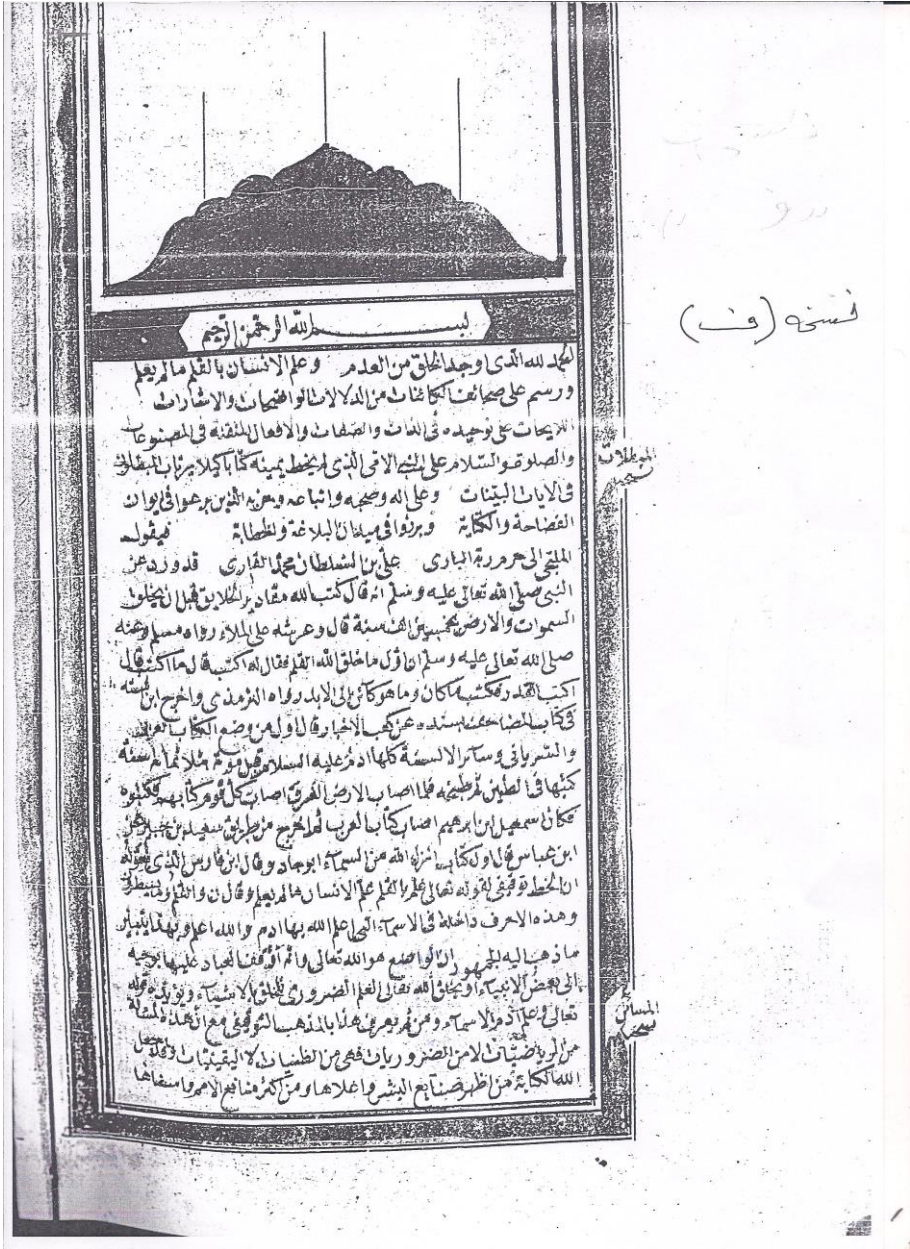 بسم الله الرحمن الرحيم
الحمد لله الذى اوجد الخلق من العدم وعلم الانسان بالقلم مالم يعلم
ورسم على صحائف الكائنات من الدلالات الواضحات والاشارات
اللايحات على توحيده فى الذات والصفات والافعال المتقنة فى المصنوعات
والصلوة والسلام على النبى الامى الذى لم يخط بيمينه كتابا كيلا يرتاب المبطلون
فى الايات البينات وعلى اله وصحبه واتباعه وحزبه الذين برعوا فى ايوان
الفصاحة والكتابة وبرزوا فى ميدان البلاغة والخطابة فيقول
الملتجى الى حرم ربه البارى على بن سلطان محمد القارى قد ورد عن
النبى صلى الله تعالى عليه وسلم انه قال كتب الله مقادير الخلايق قبل ان يخلق
السموات والارض بخمسين الف سنة قال وعرشه على الماء رواه مسلم وعنه
صلى الله تعالى عليه وسلم ان اول ما خلق الله القلم فقال له اكتب قال ما اكتب قال
اكتب القدر فكتب ما كان وما هو كائن الى الابد رواه الترمذى واخرج ابن
فى كتاب المصاحف بسنده عن كعب الاحبار قال اول من وضع الكتاب العربى
والسريانى وسائر الالسنة كلها ادم عليه السلام قبل موته بثلاثمائة سنة
كتبها فى الطين ثم طبخه فلما اصاب الارض الغرق اصاب كل قوم كتابهم فكتبوه
فكان اسمعيل ابن ابرهيم اصاب كتاب العرب ثم اخرج من طريق سعيد بن جبير عن
ابن عباس قال اول كتاب انزله الله من السماء ابو جاد وقال ابن فارس الذى نقوله
ان الخط توقيفى لقوله تعالى علم بالقلم علم الانسان مالم يعلم وقال ن والقلم وما يسطرون
وهذه الاحرف داخلة فى الاسماء التى اعلم الله بها ادم والله اعلم وبهذا يتبين
ما ذهب اليه الجمهور ان الواضع هو الله تعالى وانه اوقف العباد عليها بوحيه
الى بعض الانبياء او بخلق الله تعالى العلم الضرورى للخلق بالاشياء ويؤيده قوله
تعالى وعلم ادم الاسماء ومن ثم يعرف هذا بالمذهب التوقيفى مع ان هذه المسئلة
من لا من الضروريات فهى من الظنيات لا اليقينيات وقد جعل
الله الكتابة من اظهر صنايع البشر واعلاها ومن اكثر منافع الامم واسناها
المبطلات
نسخه
المسائل
نسخه
نسخه (ف)